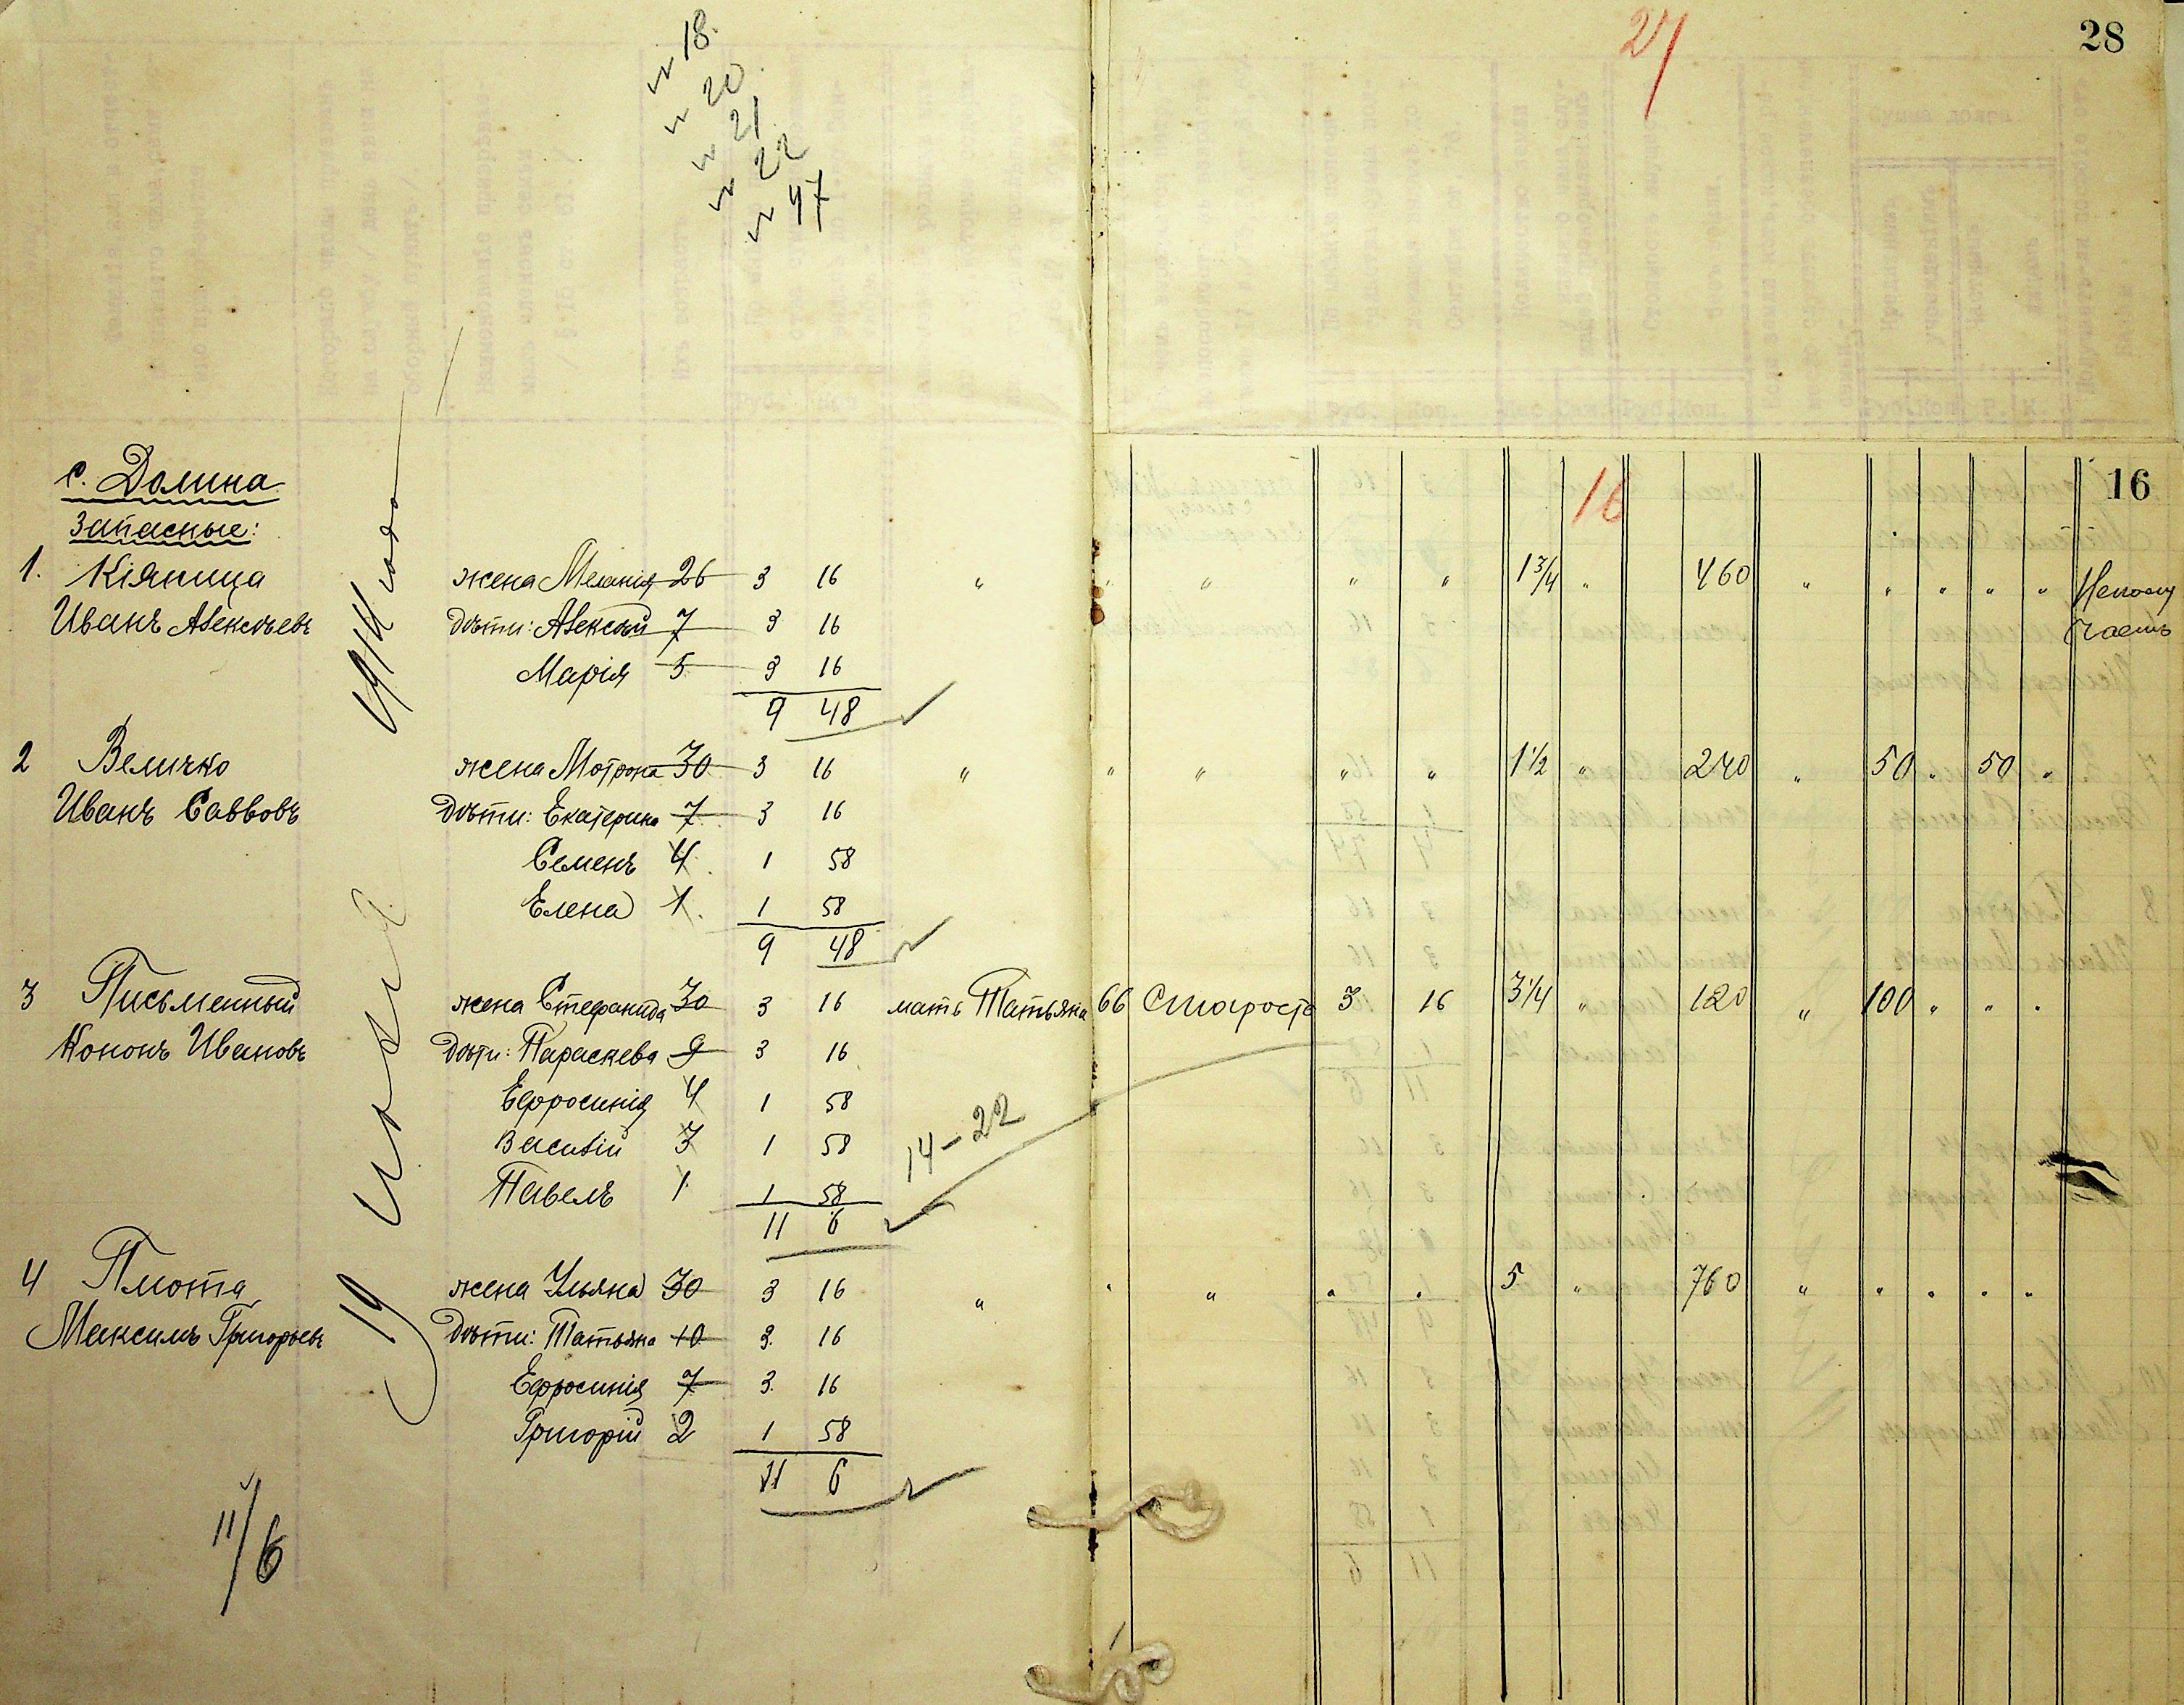 18.
20.
21
22
47
27
28
с. Долина
Запасные:
16
16
1. Кіяница жена Меланія 26 3 16 " " " " " 1 3/4 " 460 " " " " "
Иванъ Алексѣевъ дѣти: Алексѣй 7 3 16
Марія 5 3 16
9 48
2 Величко жена Мотрона 30 3 16 " " " " " 1 1/2 " 240 " 50 " 50 "
Иванъ Саввовъ дѣти: Екатерина 7 3 16
Семенъ 4 1 58
Елена 1 1 58
9 48
3 Письменный жена Стефанида 30 3 16 мать Татьяна 66 Старость 3 16 3 1/4 " 120 " 100 " " "
Кононъ Ивановъ дѣти: Параскева 9 3 16
Ефросинія 4 1 58
Василій 3 1 58
Павелъ 1 1 58
11 6
14-22
4 Плюта жена Ульяна 30 3 16 " " " " " 5 " 760 " " " " "
Максимъ Григорьевъ дѣти: Татьяна 10 3 16
Ефросинія 7 3 16
Григорій 2 1 58
11 6
19 іюля
11/6